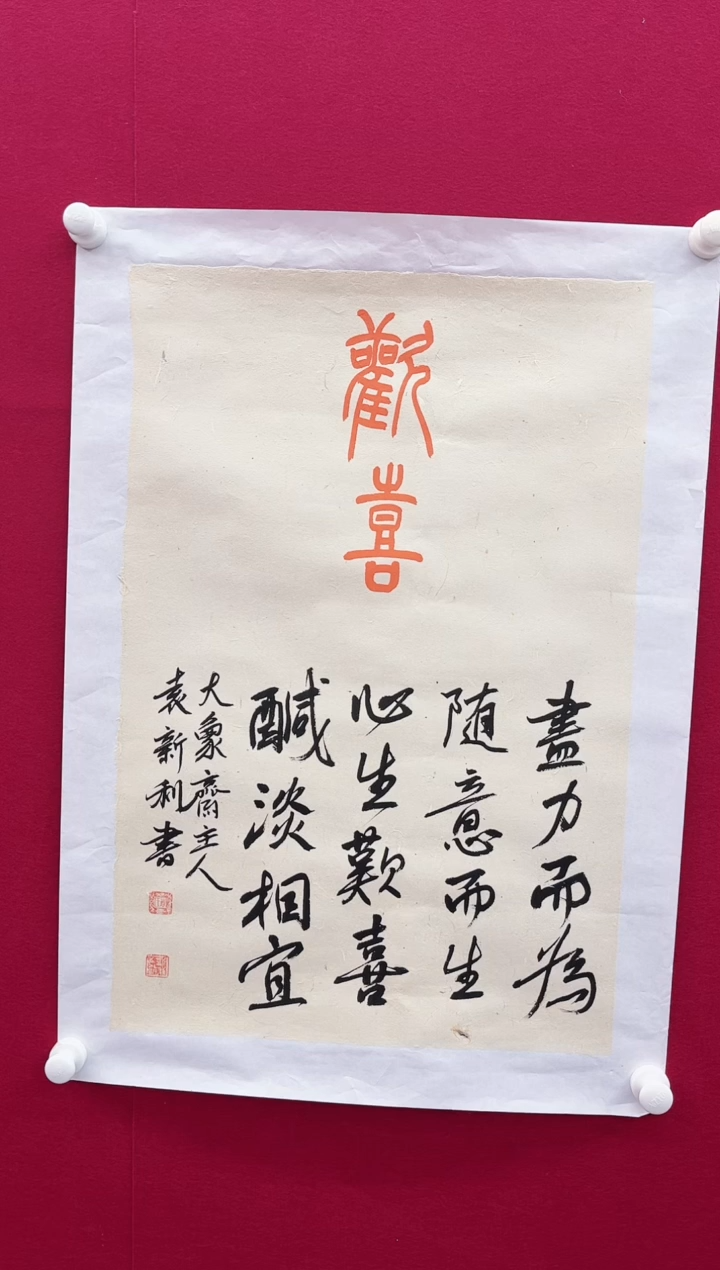 歡喜
盡力而為
随意而生
心生歡喜
醎淡相宜
大象齋主人
袁新利書